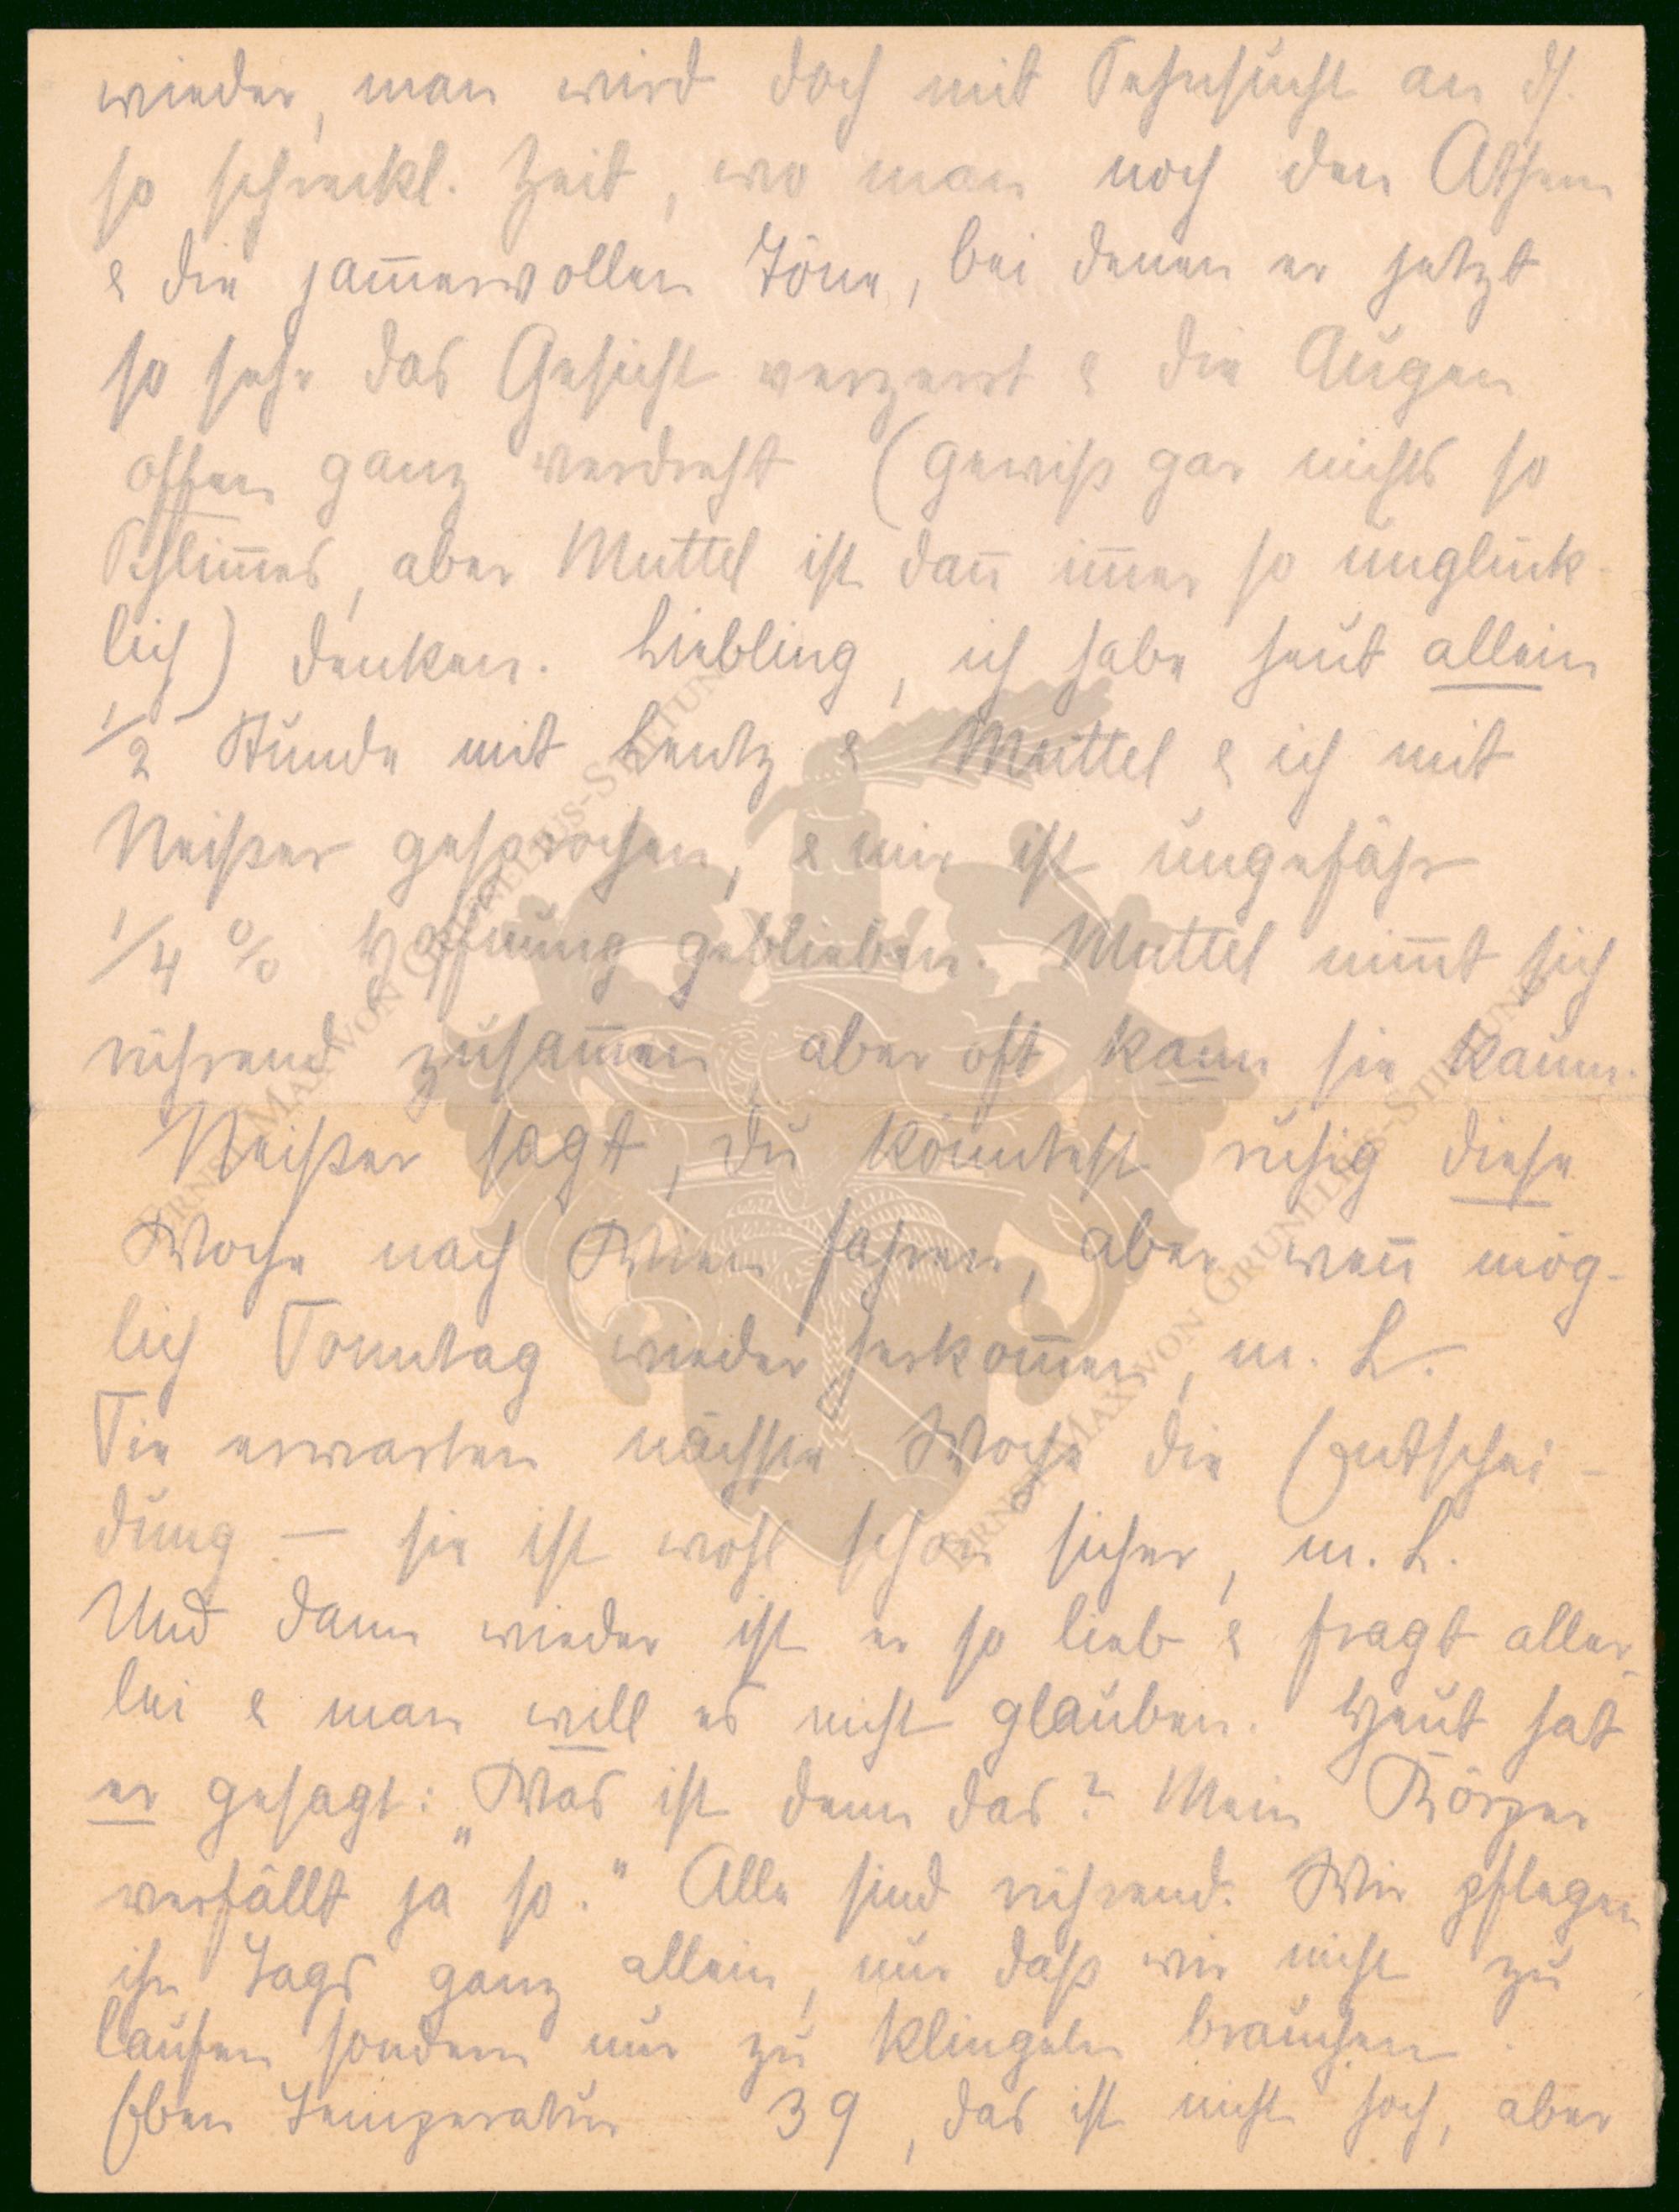 wieder, man wird doch mit Sehnsucht an ds.
so schreckl. Zeit, wo man noch den Athem
& die jam̅ervollen Töne, bei denen er jetzt
so sehr das Gesicht verzerrt & die Augen
offen ganz verdreht (gewiß gar nichts so
Schlim̅es, aber Muttel ist dan̅ im̅er so unglück-
lich) denken. Liebling, ich habe heut allein
1/2 Stunde mit Lentz & Muttel & ich mit
Neißer gesprochen, & mir ist ungefähr
1/4 % Hoffnung geblieben. Muttel nim̅t sich
rührend zusam̅en, aber oft kann sie kaum.
Neißer sagt, du könntest ruhig diese
Woche nach Wien fahren, aber wen̅ mög-
lich Sonntag wieder herkom̅en, m. L.
Sie erwarten nächste Woche die Entschei-
dung – sie ist wohl schon sicher, m. L.
Und dann wieder ist er so lieb & fragt aller-
lei & man will es nicht glauben. Heut hat
er gesagt: „Was ist denn das? Mein Körper
verfällt ja so." Alle sind rührend. Wir pflegen
ihn Tags ganz allein, nur daß wir nicht zu
laufen sondern nur zu klingeln brauchen.
Eben Temperatur 39, das ist nicht hoch, aber
ERNST-MAX VON GRUNELIUS-STIFTUNG
ERNST-MAX VON GRUNELIUS-STIFTUNG